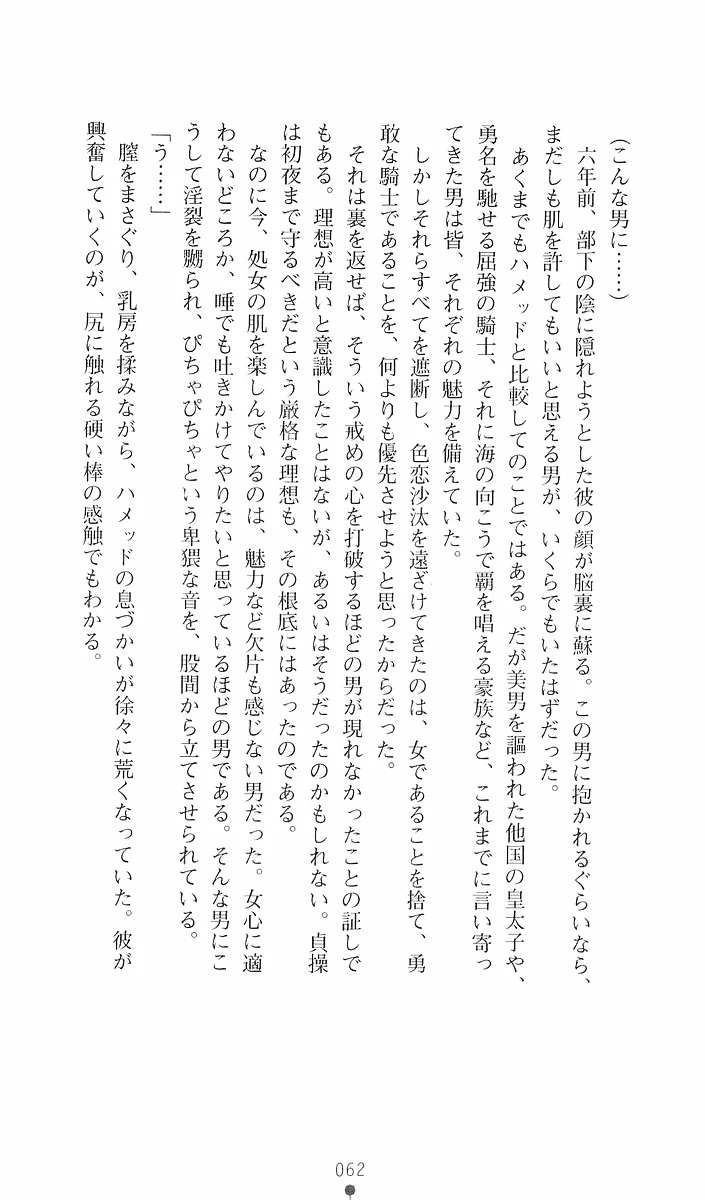 （こんな男に……）
　六年前、部下の陰に隠れようとした彼の顔が脳裏に蘇る。この男に抱かれるぐらいなら、
まだしも肌を許してもいいと思える男が、いくらでもいたはずだった。
　あくまでもハメッドと比較してのことではある。だが美男を謳われた他国の皇太子や、
勇名を馳せる屈強の騎士、それに海の向こうで覇を唱える豪族など、これまでに言い寄っ
てきた男は皆、それぞれの魅力を備えていた。
　しかしそれらすべてを遮断し、色恋沙汰を遠ざけてきたのは、女であることを捨て、勇
敢な騎士であることを、何よりも優先させようと思ったからだった。
　それは裏を返せば、そういう戒めの心を打破するほどの男が現れなかったことの証しで
もある。理想が高いと意識したことはないが、あるいはそうだったのかもしれない。貞操
は初夜まで守るべきだという厳格な理想も、その根底にはあったのである。
　なのに今、処女の肌を楽しんでいるのは、魅力など欠片も感じない男だった。女心に適
わないどころか、唾でも吐きかけてやりたいと思っているほどの男である。そんな男にこ
うして淫裂を嬲られ、ぴちゃぴちゃという卑猥な音を、股間から立てさせられている。
「う……」
　膣をまさぐり、乳房を揉みながら、ハメッドの息づかいが徐々に荒くなっていた。彼が
興奮していくのが、尻に触れる硬い棒の感触でもわかる。
062